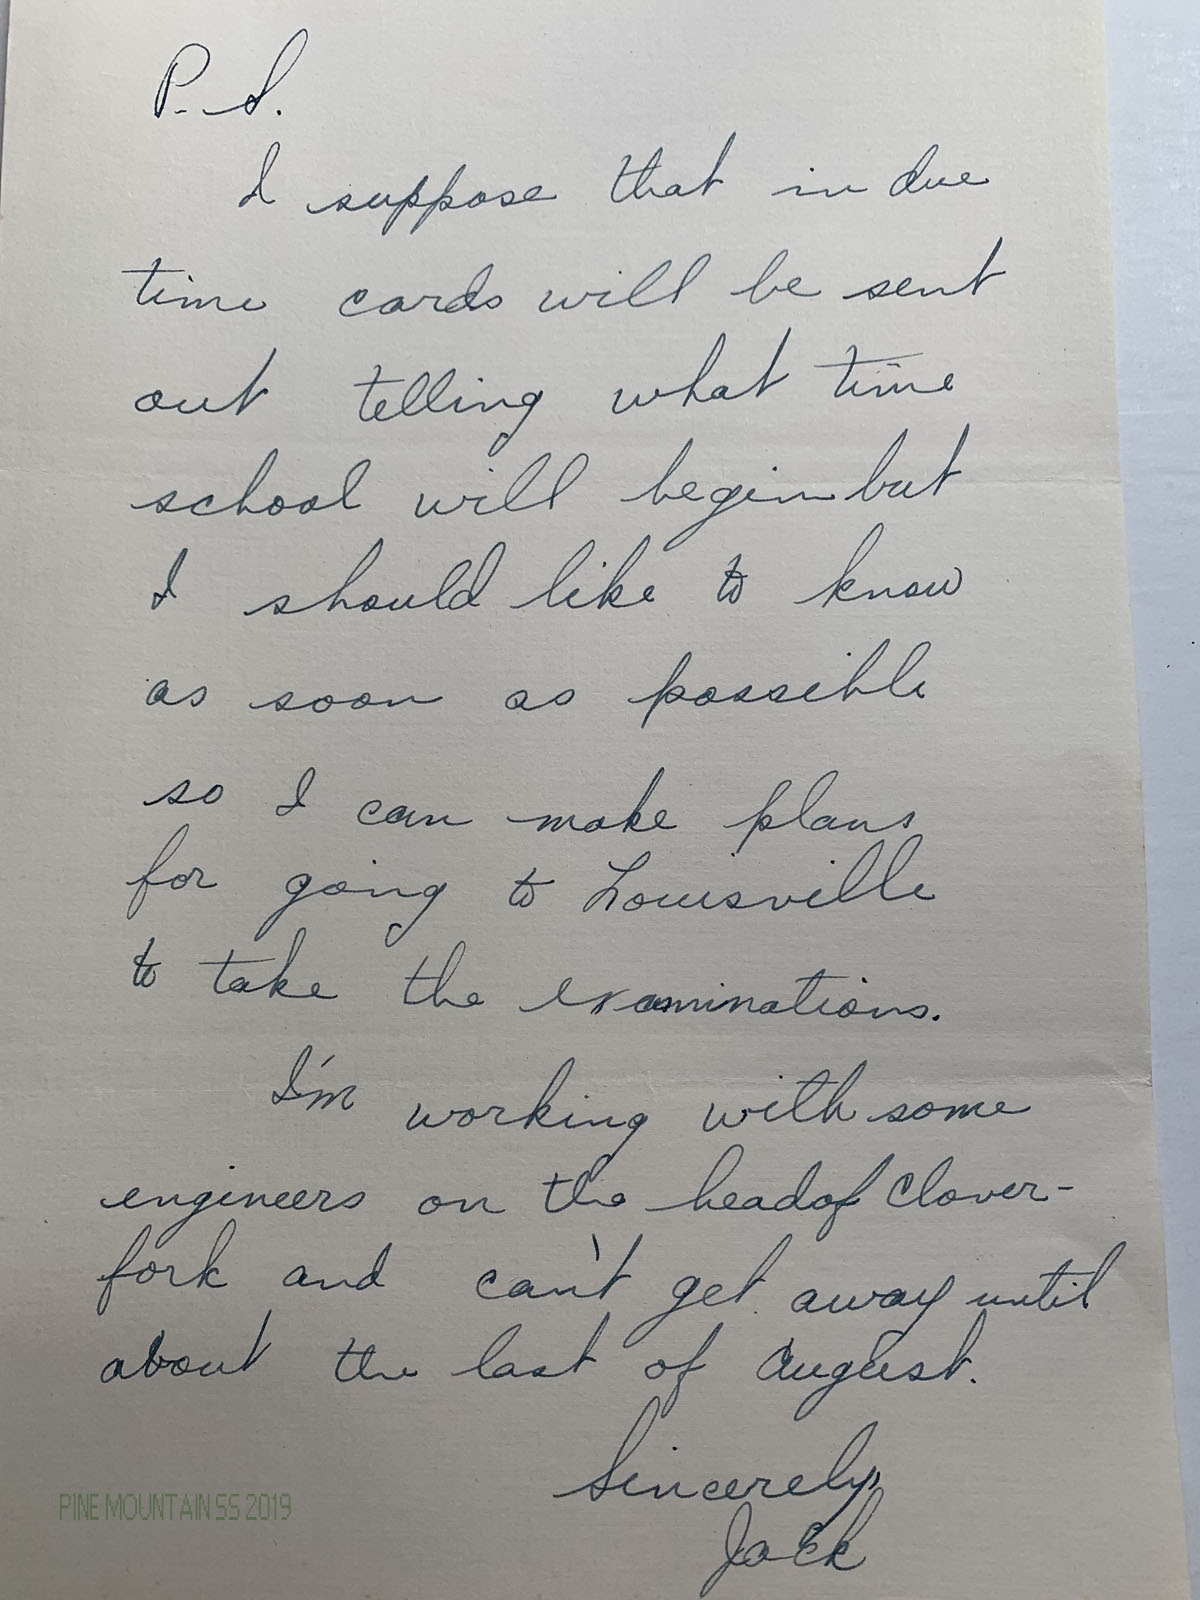 P.S.
I suppose that in due
time cards will be sent
out telling what time
school will begin but
I should like to know
as soon as possible
so I can make plans
for going to Louisville
to take the examinations.
I'm working with some
engineers on the head of Clover-
fork and can't get away until
about the last of August.
Sincerely,
Jack
PINE MOUNTAIN SS 2019